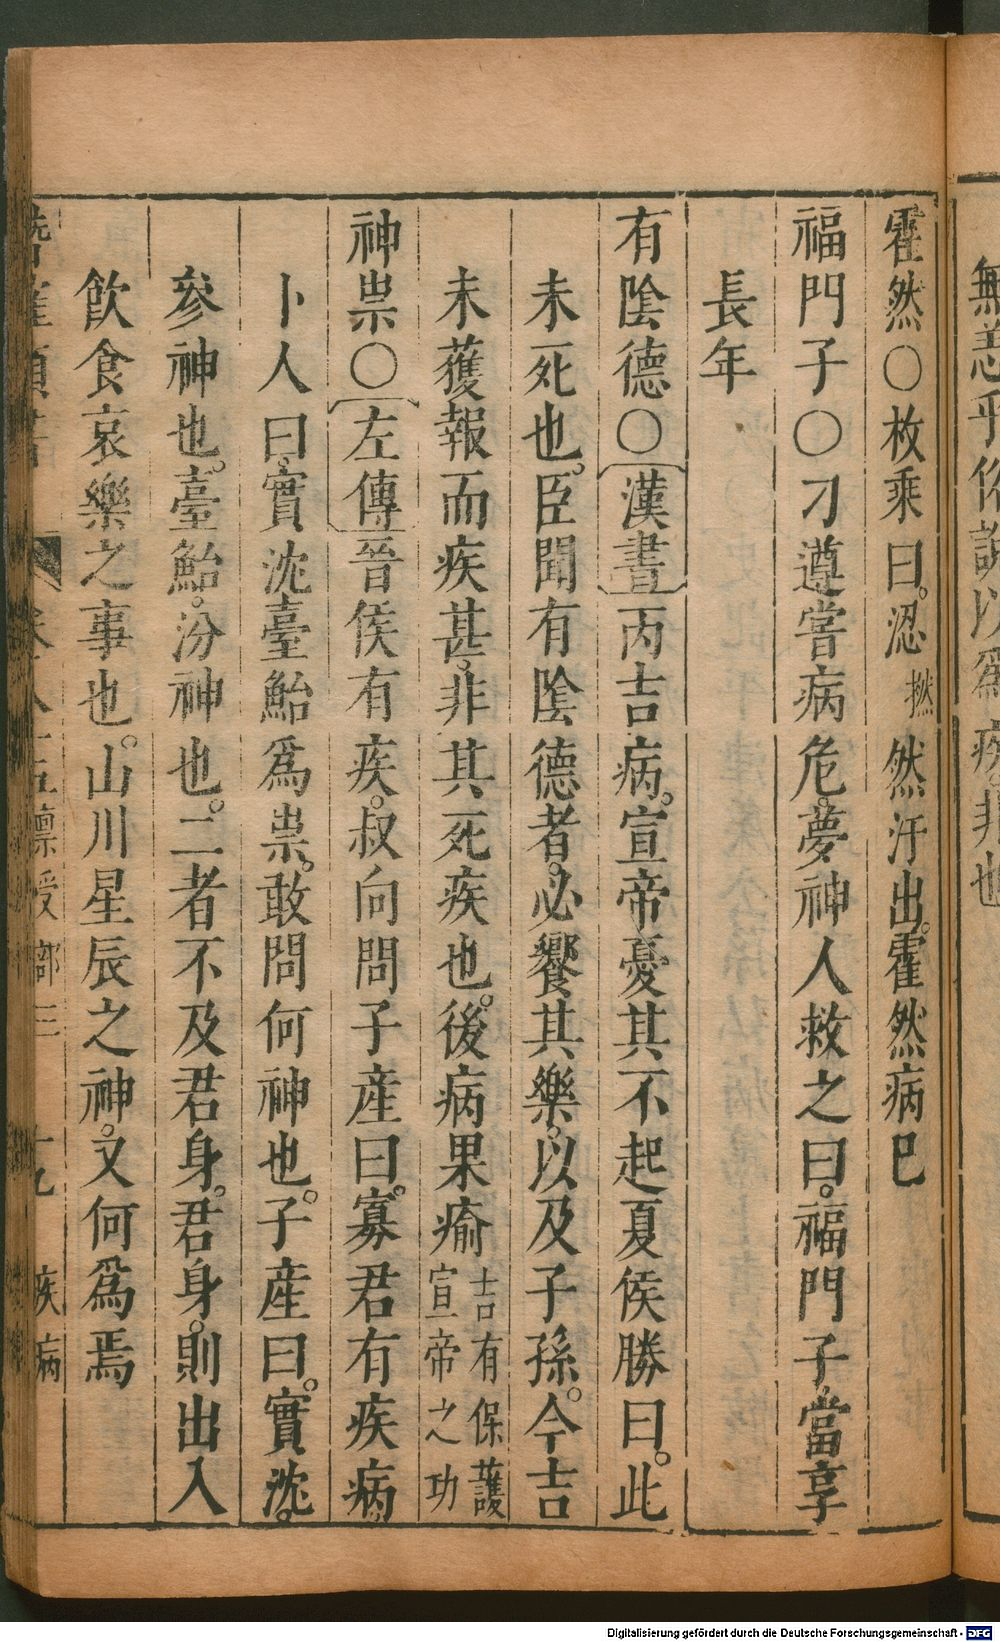 無恙乎俗說以爲疾非也
霍然○枚乘曰。涊撚然汗出。霍然病已
福門子○刁遵嘗病危。夢神人救之曰。福門子。當享
長年
有陰德○漢書丙吉病。宣帝憂其不起夏侯勝曰。此
未死也。臣聞有陰德者。必饗其樂。以及子孫。今吉
未獲報而疾甚。非其死疾也。後病果瘉吉有保護宣帝之功
神祟○左傳晉侯有疾。叔向問子產曰。寡君有疾病。
卜人曰。實沈臺鮐爲祟。敢問何神也。子產曰。實沈。
參神也。臺鮐。汾神也。二者不及君身。君身。則出入
飲食哀樂之事也。山川星辰之神。又何爲焉
類書 卷 五 稟受部三 十九 疾病
Digitalisierung gefördert durch die Deutsche Forschungsgemeinschaft - DFG